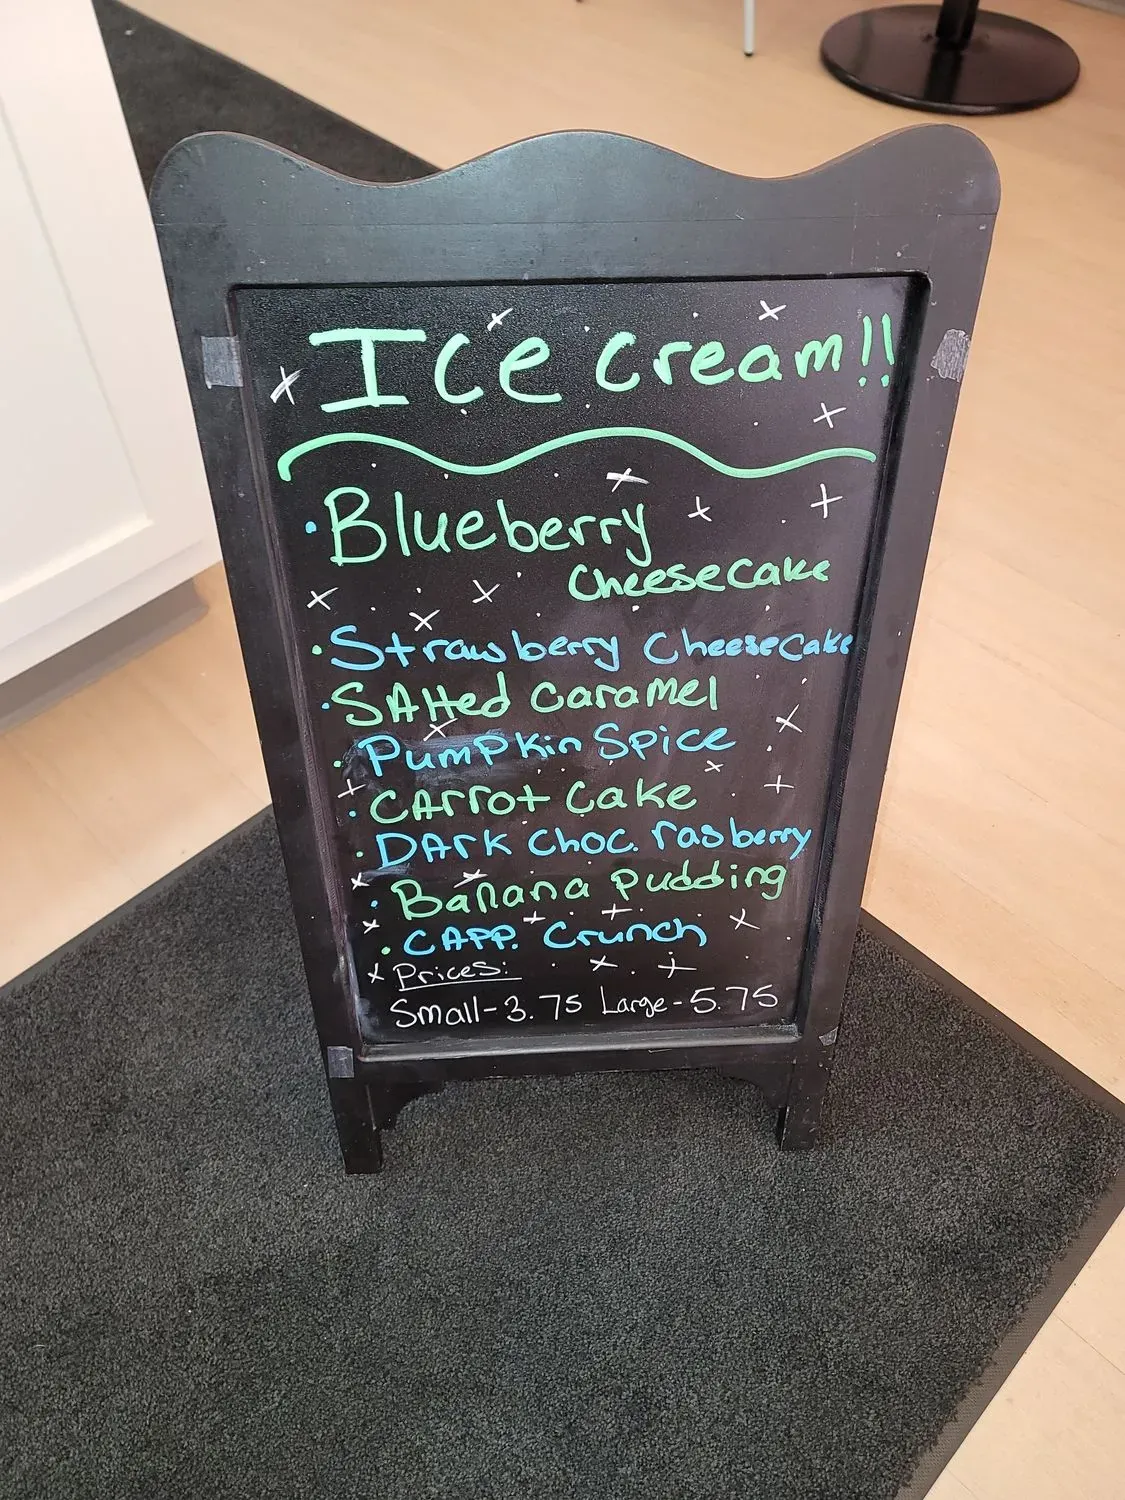 Ice cream!!
Blueberry
Cheesecake
Strawberry Cheesecake
SAlted Caramel
PumPkin Spice
CArrot Cake
DArk Choc. rasberry
Banana pudding
CAPP. Crunch
Prices:
Small-3.75 Large-5.75